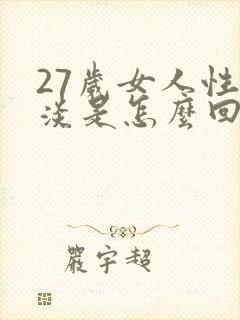 27歲女人性
淡是怎麼回
嚴宇超